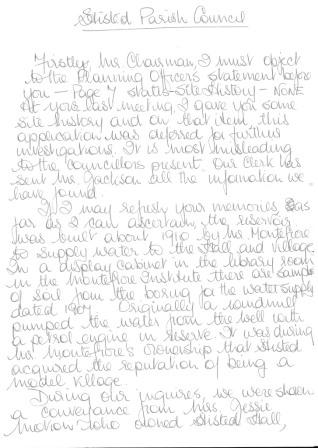 Stisted Parish Council
Firstly, Mr Chairman, I must object
to the Planning Officers statement before
you - Page 7 states - Site History - NONE
At your last meeting, I gave you some
site history and on that item, this
application was deferred for further
investigations. It is most misleading
to the councillors present. Our Clerk has
sent Mr Jackson all the infomation we
have found.
If I may refresh your memories, as
far as I can ascertain, the reservoir
was built about 1910 by Mr Montefiore
to supply water to the Hall and village.
In a display cabinet in the library room
in the Montefiore Institute there are samples
of soil from the boring for the water supply
dated 1907. Originally a windmill
pumped the water from the well with
a petrol engine in reserve. It was during
Mr Montefiore's ownership that Stisted
acquired the reputation of being a
model village.
During our inquires, we were shown
a conveyance from Mrs. Jessie
who owned Stisted Hall,